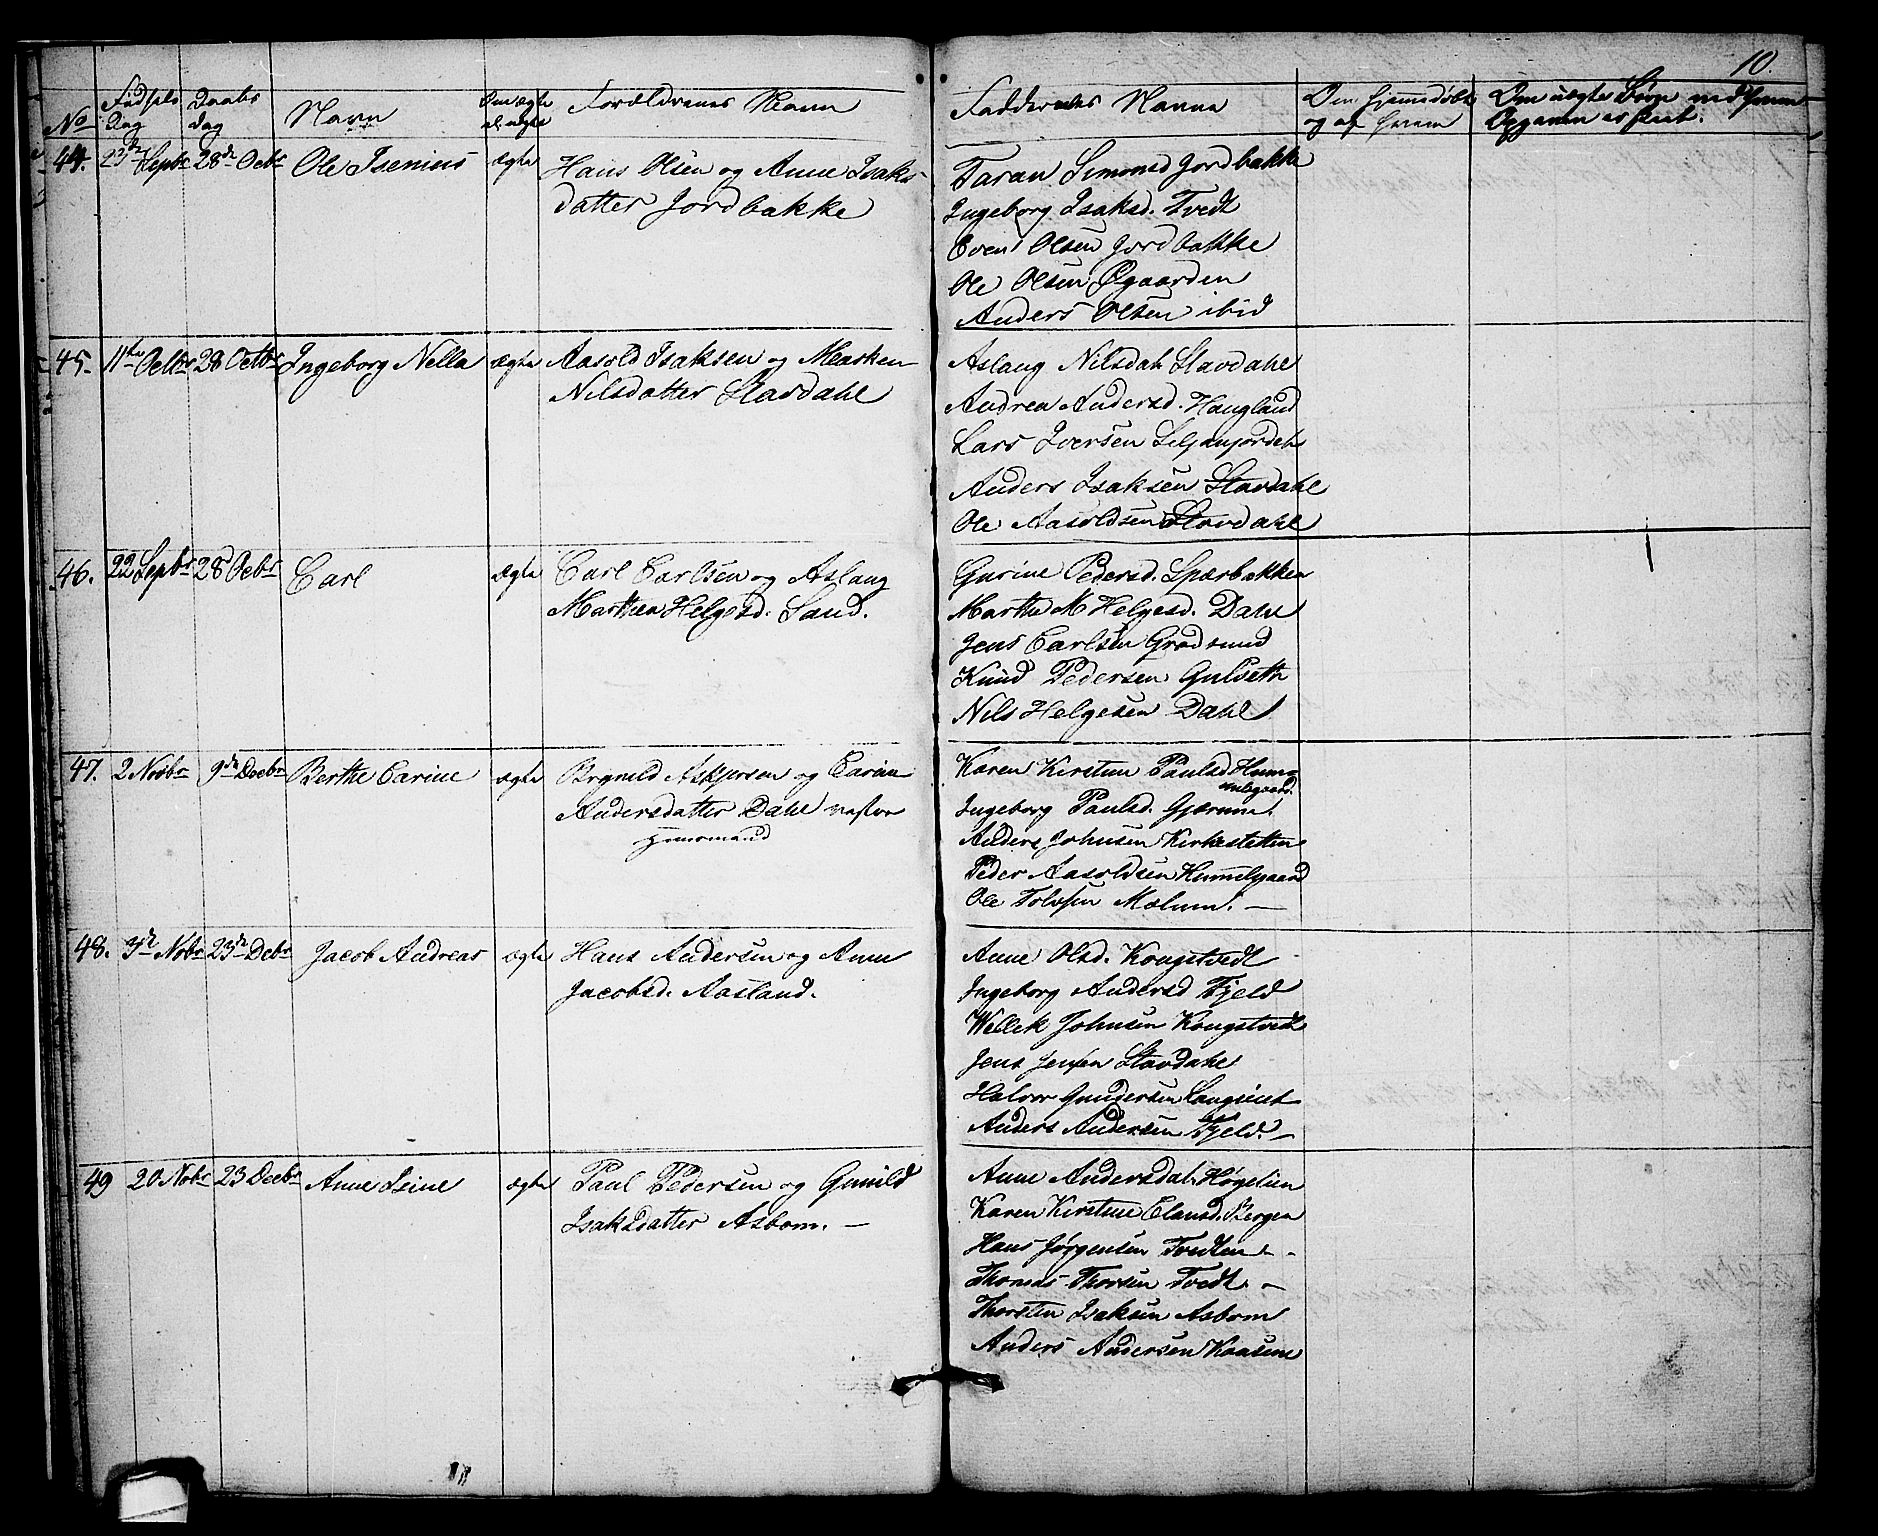 10.
No
Fødsels Dag
Daabs dag
Navn
Om ægte el. uægte
Forældrenes Navn
Faddernes Navne
Om hjemmedøbt og af hvem
Om uægte Børn ved hvem Opgaven er skeet.
44. 23de Septbr 28de Octbr Ole Isenius ægte Hans Olsen og Anne Isaks-
datter Jordbakke
Taran Simonsd Jordbakke
Ingeborg Isaksd. Tvedt
Even Olsen Jordbakke
Ole Olsen Øgaarden
Anders Olsen ibid
45. 11te Octbr 28 Octbr Ingeborg Nella ægte Aasold Isaksen og Marken
Nilsdatter Stavdahl
Aslaug Nilsdat. Stavdahl
Andrea Andersd. Haugland
Lars Iversen Seljeujordet
Anders Isaksen Stavdahl
Ole Aasoldsen Stavdahl
46. 22 Septbr 28 Octbr Carl ægte Carl Carlsen og Aslaug
Marthea Helgesd. Sand.
Gurine Pedersd. Spærbakken
Marthe M Helgesd. Dahl
Jens Carlsen Grødsund
Knud Pedersen Gulseth
Nils Helgesen Dahl
47. 2 Novbr 9de Decbr Berthe Carine ægte Brynild Askjersen og Carine
Andersdatter Dahl vestre
Huusmand
Karen Kirstine Paulsd Himmelgaard
Ingeborg Paulsd. Gjærum
Anders Johnsen Kirkestetten
Peder Aasoldsen Himmelgaard
Ole Tolvsen Mælum. —
48. 3de Nobr 23de Debr Jacob Andreas ægte Hans Andersen og Anne
Jacobsd. Aasland.
Anne Olsd. Kongstvedt
Ingeborg Andersd Fjeld
Wetlek Johnsen Kongstvedt
Jens Jensen Stavdahl
Halvor Gundersen Langseiet
Anders Andersen Fjeld. —
49 20 Nobr 23 Decbr Anne Isine ægte Paul Pedersen og Gunild
Isaksdatter Asbom. —
Anne Andersdat. Høgelien
Karen Kirstine Clausd. Bergen
Hans Jørgensen Tvedten —
Thomas Thorsen Tvedt. —
Thorsten Isaksen Asbom
Anders Andersen Kaasene